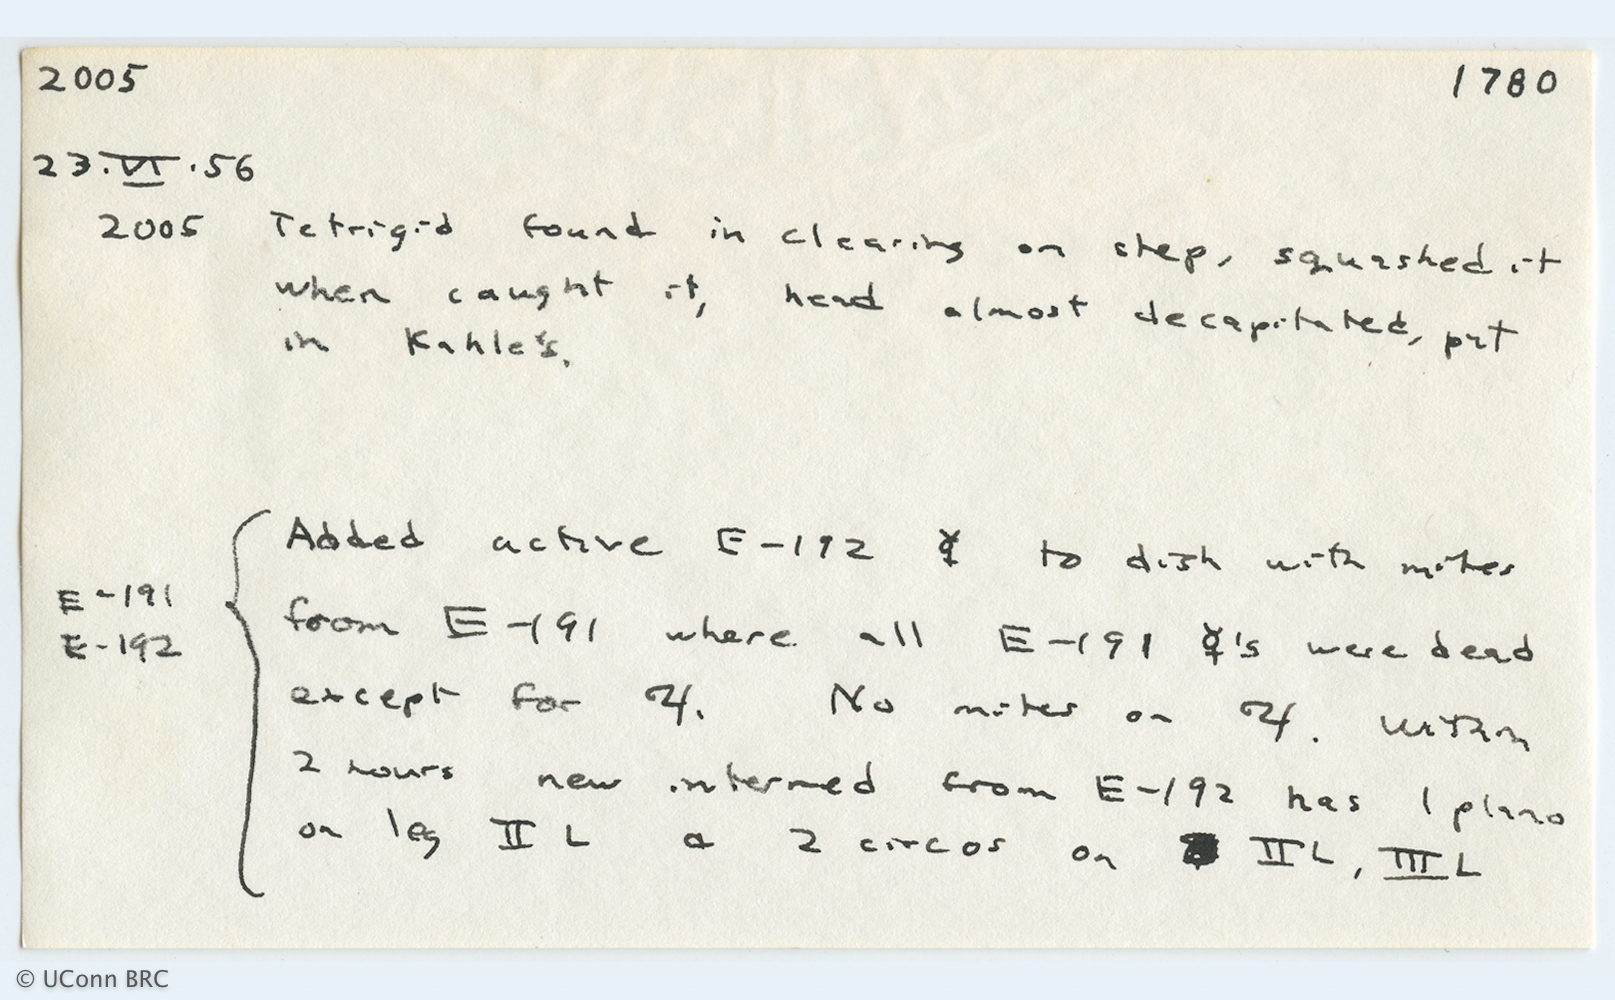 2005 1780
23.VI.56
2005 Tetrigid found in clearing on step, squashed it
when caught it, head almost decapitated, put
in Kahle's.
E-191
E-192
Added active E-192 ☿ to dish with mites
from E-191 where all E-191 ☿'s were dead
except for ♃. No mites on ♃. Within
2 hours new intermed from E-192 has 1 plano
on leg II L & 2 circos on II L, III L
© UConn BRC